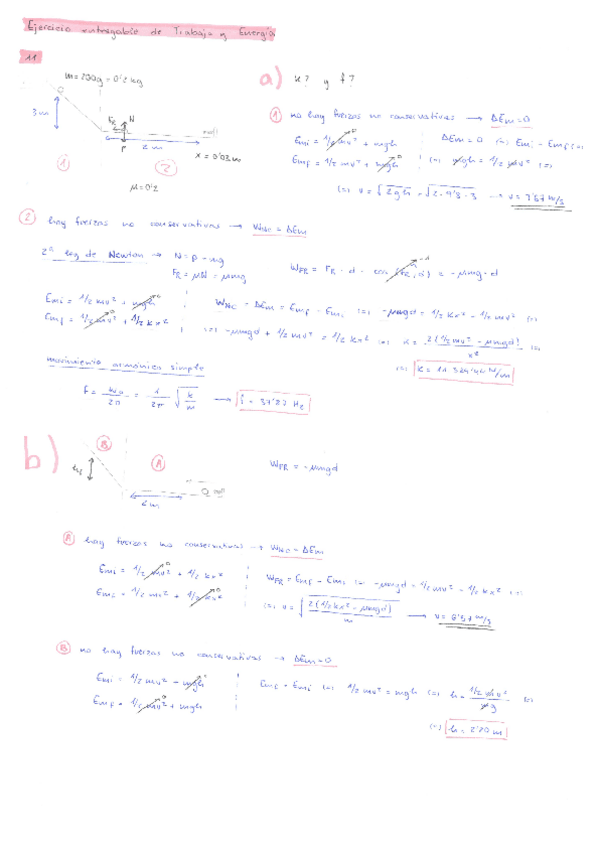 Ejercicio entregable de Trabajo y Energía
11
m = 200g = 0'2 kg
3 m
FR N
P
2 m
x = 0'03 m
① ②
μ = 0'2
a) k? y f?
① no hay fuerzas no conservativas → ΔEm = 0
Emi = 1/2 mv² + mgh
Emf = 1/2 mv² + mgh
ΔEm = 0 (=) Emi = Emf (=)
(=) mgh = 1/2 mv² (=)
(=) v = √2gh = √2·9'8·3 → v = 7'67 m/s
② hay fuerzas no conservativas → WNC = ΔEm
2ª ley de Newton → N = P = mg
FR = μN = μmg
WFR = FR · d · cos (FR, d) = -μmg·d
Emi = 1/2 mv² + mgh
Emf = 1/2 mv² + 1/2 kx²
WNC = ΔEm = Emf - Emi (=) -μmgd = 1/2 kx² - 1/2 mv² (=)
(=) -μmgd + 1/2 mv² = 1/2 kx² (=) k = 2(1/2 mv² - μmgd) / x² (=)
(=) k = 11 324'44 N/m
movimiento armónico simple
f = ω0 / 2π = 1 / 2π √k/m → f = 37'87 Hz
b)
B A
2 m
WFR = -μmgd
A hay fuerzas no conservativas → WNC = ΔEm
Emi = 1/2 mv² + 1/2 kx²
Emf = 1/2 mv² + 1/2 kx²
WFR = Emf - Emi (=) -μmgd = 1/2 mv² - 1/2 kx² (=)
(=) v = √2(1/2 kx² - μmgd) / m
B no hay fuerzas no conservativas → ΔEm = 0
Emi = 1/2 mv² + mgh
Emf = 1/2 mv² + mgh
Emf = Emi (=) 1/2 mv² = mgh (=) h = 1/2 mv² / mg (=)
(=) h = 2'20 m